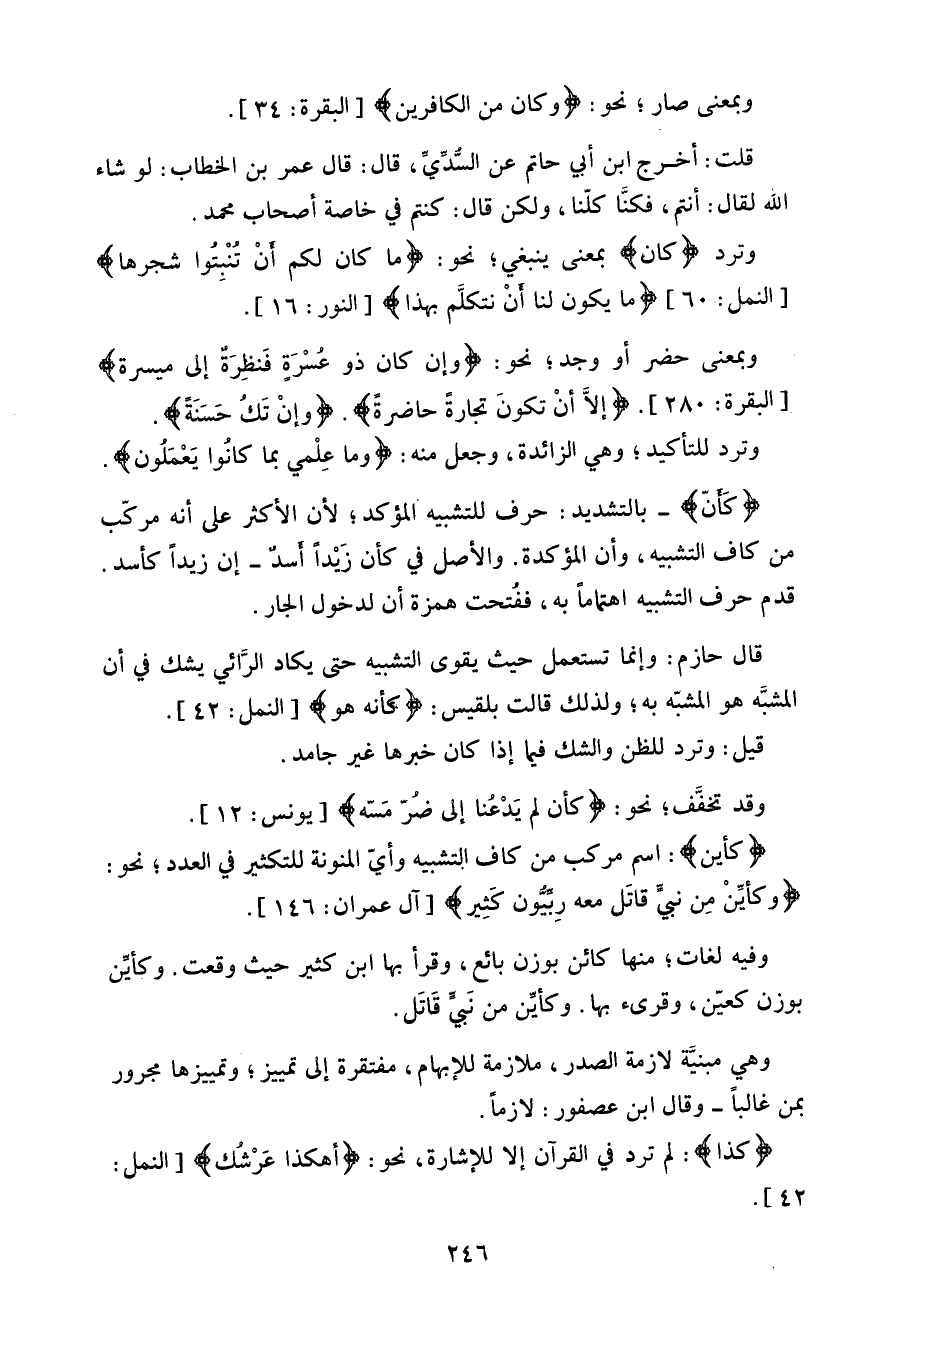 وبمعنى صار ؛ نحو : ﴿وكان من الكافرين﴾ [ البقرة: ٣٤ ].
قلت: أخرج ابن أبي حاتم عن السُّدِّيِّ، قال: قال عمر بن الخطاب: لو شاء
الله لقال: أنتم، فكنَّا كلّنا، ولكن قال: كنتم في خاصة أصحاب محمد .
وترد ﴿كان﴾ بمعنى ينبغي؛ نحو: ﴿ما كان لكم أَنْ تُنْبِتُوا شجرها﴾
[ النمل: ٦٠ ] ﴿ما يكون لنا أَنْ نتكلَّم بهذا﴾ [ النور : ١٦ ].
وبمعنى حضر أو وجد؛ نحو: ﴿وإن كان ذو عُسْرَةٍ فَنظِرَةٌ إلى ميسرة﴾
[ البقرة: ٢٨٠ ]. ﴿إلاَّ أنْ تكونَ تجارةً حاضرةً﴾. ﴿وإنْ تَكُ حَسَنَةً﴾.
وترد للتأكيد؛ وهي الزائدة، وجعل منه: ﴿وما عِلْمي بما كانُوا يَعْمَلُون﴾.
﴿كَأَنّ﴾ ـ بالتشديد: حرف للتشبيه المؤكد؛ لأن الأكثر على أنه مركّب
من كاف التشبيه، وأن المؤكدة. والأصل في كأن زَيْداً أسدٌ ـ إن زيداً كأسد .
قدم حرف التشبيه اهتماماً به، ففُتحت همزة أن لدخول الجار .
قال حازم: وإنما تستعمل حيث يقوى التشبيه حتى يكاد الرَّائي يشك في أن
المشبَّه هو المشبّه به؛ ولذلك قالت بلقيس: ﴿كأنه هو﴾ [ النمل: ٤٢ ].
قيل: وترد للظن والشك فيما إذا كان خبرها غير جامد .
وقد تخفَّف؛ نحو: ﴿كأن لم يَدْعُنا إلى ضُرّ مَسّه﴾ [ يونس: ١٢ ].
﴿كأين﴾: اسم مركب من كاف التشبيه وأيّ المنونة للتكثير في العدد؛ نحو:
﴿وكأيِّنْ مِن نبيٍّ قاتَل معه رِبِّيُّون كَثِير﴾ [ آل عمران: ١٤٦ ].
وفيه لغات؛ منها كائن بوزن بائع، وقرأ بها ابن كثير حيث وقعت. وكأيِّن
بوزن كعيّن، وقرىء بها. وكأيِّن من نَبيٍّ قَاتَل.
وهي مبنيَّة لازمة الصدر، ملازمة للإبهام، مفتقرة إلى تمييز؛ وتمييزها مجرور
بمن غالباً ـ وقال ابن عصفور: لازماً.
﴿كذا﴾: لم ترد في القرآن إلا للإشارة، نحو: ﴿أهكذا عَرْشُك﴾ [ النمل:
٤٢ ].
٢٤٦